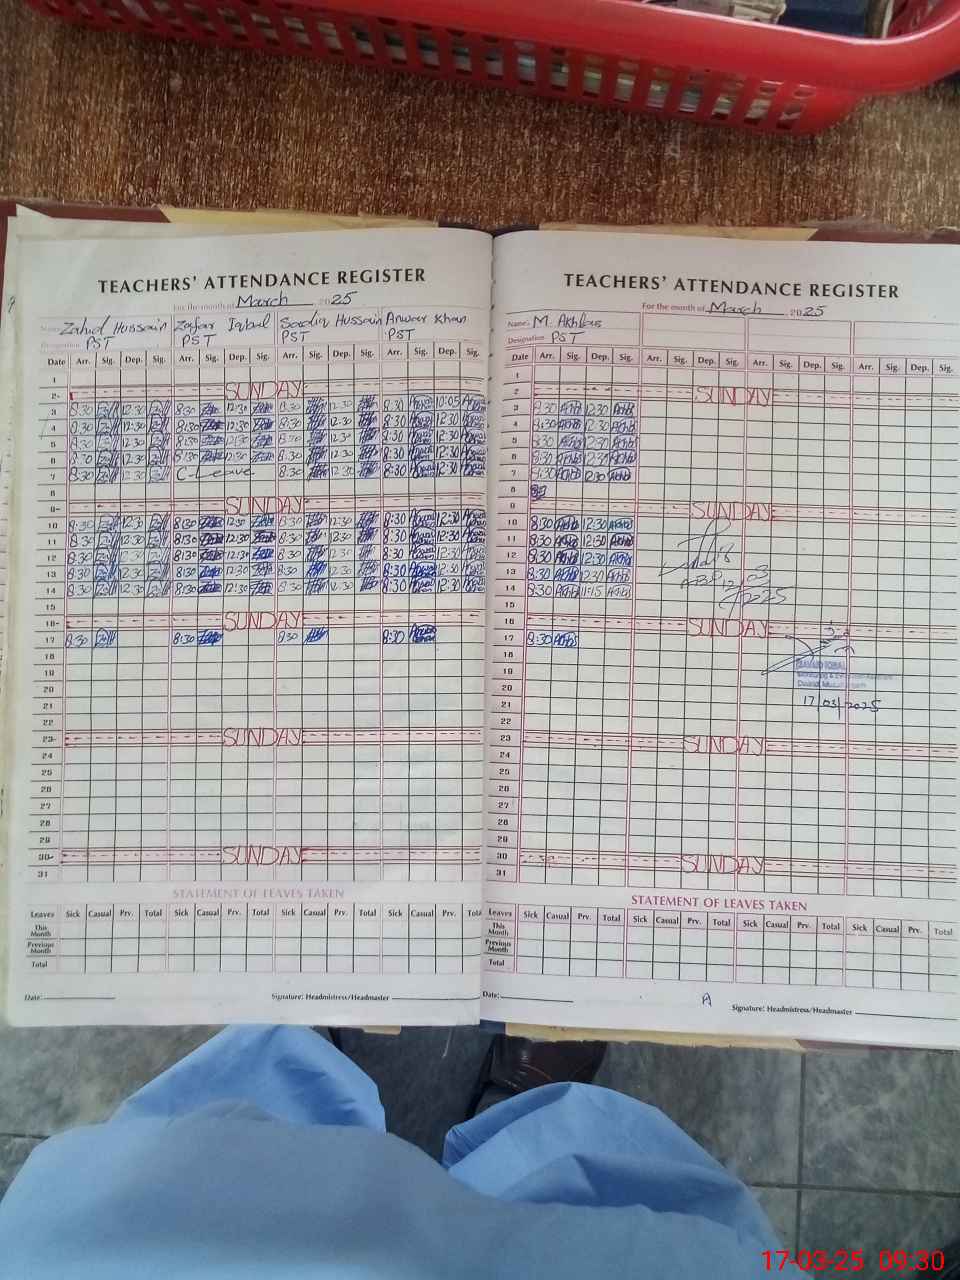 TEACHERS' ATTENDANCE REGISTER
For the month of March 2025
Name: Zahid Hussain Zafar Iqbal Sardiq Hussain Anwar Khan
Designation PST PST PST PST
Date Arr. Sig. Dep. Sig. Arr. Sig. Dep. Sig. Arr. Sig. Dep. Sig. Arr. Sig. Dep. Sig.
1
2 SUNDAY
3 8:30 12:30 8:30 12:30 8:30 12:30 8:30 10:05
4 8:30 12:30 8:30 12:30 8:30 12:30 8:30 12:30
5 8:30 12:30 8:30 12:30 8:30 12:30 8:30 12:30
6 8:30 12:30 8:30 12:30 8:30 12:30 8:30 12:30
7 8:30 12:30 C-Leave 8:30 12:30 8:30 12:30
8
9 SUNDAY
10 8:30 12:30 8:30 12:30 8:30 12:30 8:30 12:30
11 8:30 12:30 8:30 12:30 8:30 12:30 8:30 12:30
12 8:30 12:30 8:30 12:30 8:30 12:30 8:30 12:30
13 8:30 12:30 8:30 12:30 8:30 12:30 8:30 12:30
14 8:30 12:30 8:30 12:30 8:30 12:30 8:30 12:30
15
16 SUNDAY
17 8:30 8:30 8:30 8:30
18
19
20
21
22
23 SUNDAY
24
25
26
27
28
29
30 SUNDAY
31
STATEMENT OF LEAVES TAKEN
Leaves Sick Casual Prv. Total Sick Casual Prv. Total Sick Casual Prv. Total Sick Casual Prv. Total
This Month
Previous Month
Total
Date:
Signature: Headmistress/Headmaster
TEACHERS' ATTENDANCE REGISTER
For the month of March 2025
Name: M. Akhlas
Designation PST
Date Arr. Sig. Dep. Sig. Arr. Sig. Dep. Sig. Arr. Sig. Dep. Sig. Arr. Sig. Dep. Sig.
1
2 SUNDAY
3 8:30 12:30
4 8:30 12:30
5 8:30 12:30
6 8:30 12:30
7 8:30 12:30
8
9 SUNDAY
10 8:30 12:30
11 8:30 12:30
12 8:30 12:30
13 8:30 12:30
14 8:30 11:15
15
16 SUNDAY
17 8:30
18
19
20
21
22
23 SUNDAY
24
25
26
27
28
29
30 SUNDAY
31
JAVAID IQBAL
17/03/2025
STATEMENT OF LEAVES TAKEN
Leaves Sick Casual Prv. Total Sick Casual Prv. Total Sick Casual Prv. Total Sick Casual Prv. Total
This Month
Previous Month
Total
Date:
A
Signature: Headmistress/Headmaster
17-03-25 09:30